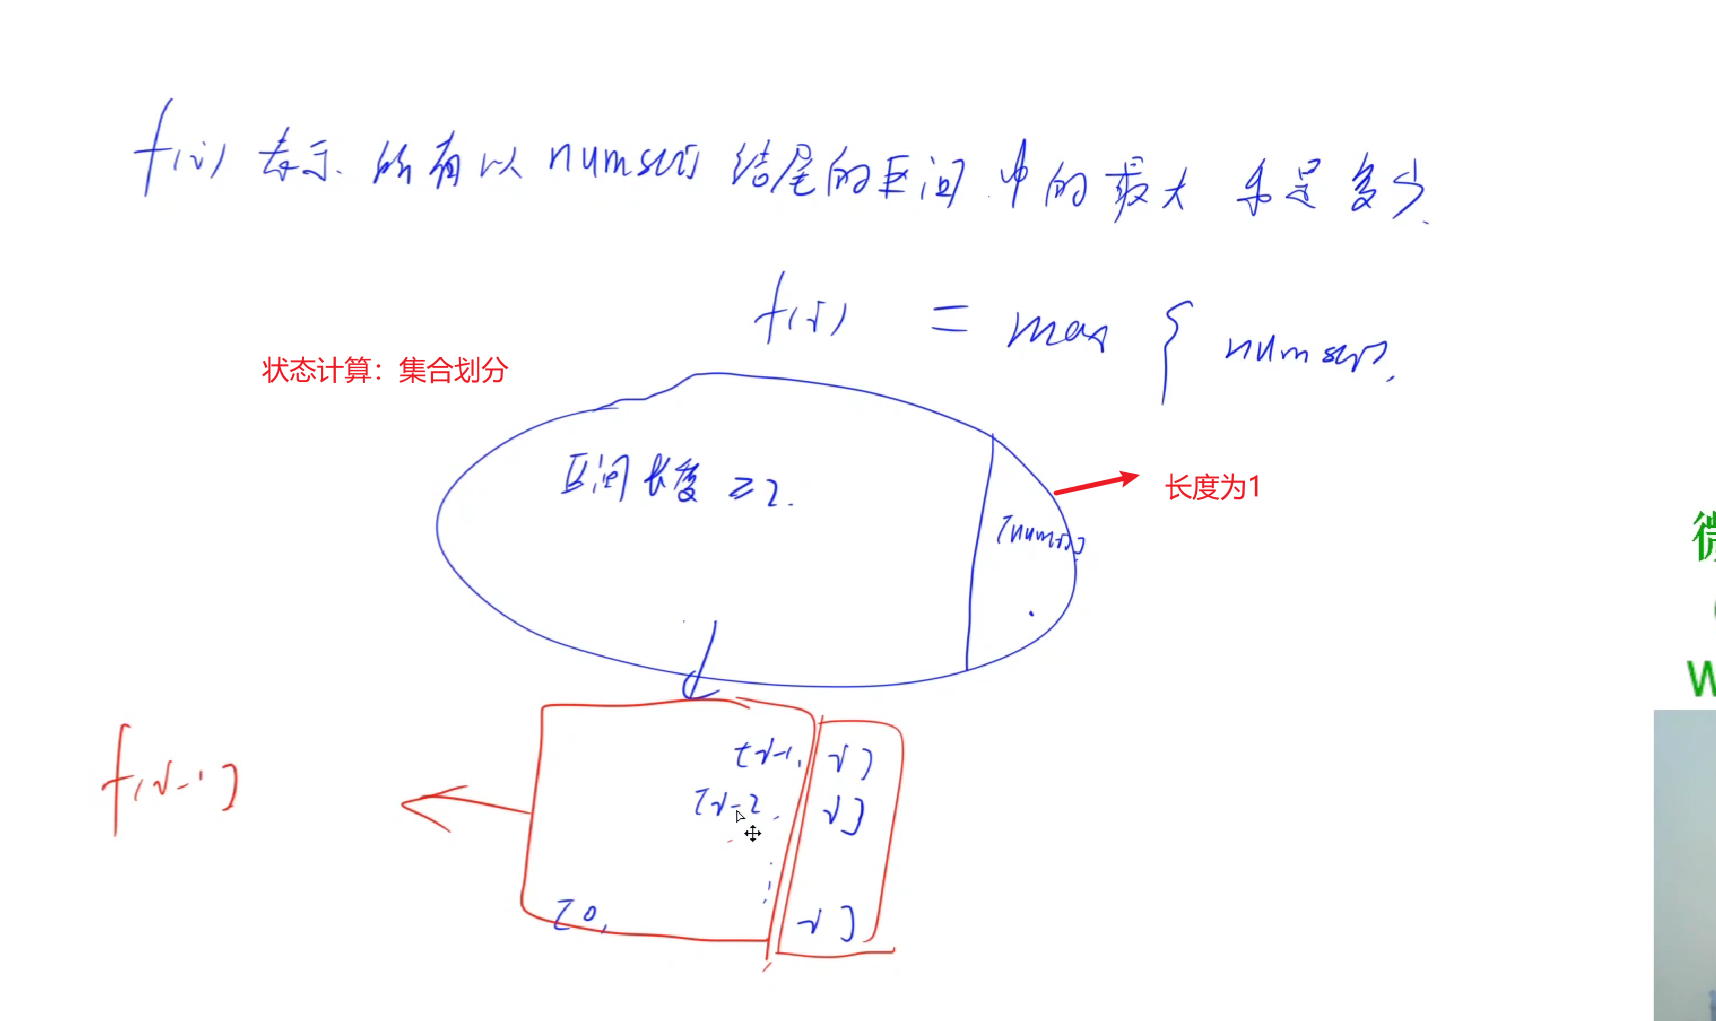 f(i) 表示 所有以 nums[i] 结尾的区间中的最大和是多少.
f(i) = max { nums[i],
状态计算：集合划分
区间长度 ≥2.
长度为1
[nums[i]]
微
W
[i-1, i]
f(i-1)
[i-2, i]
[0, i]